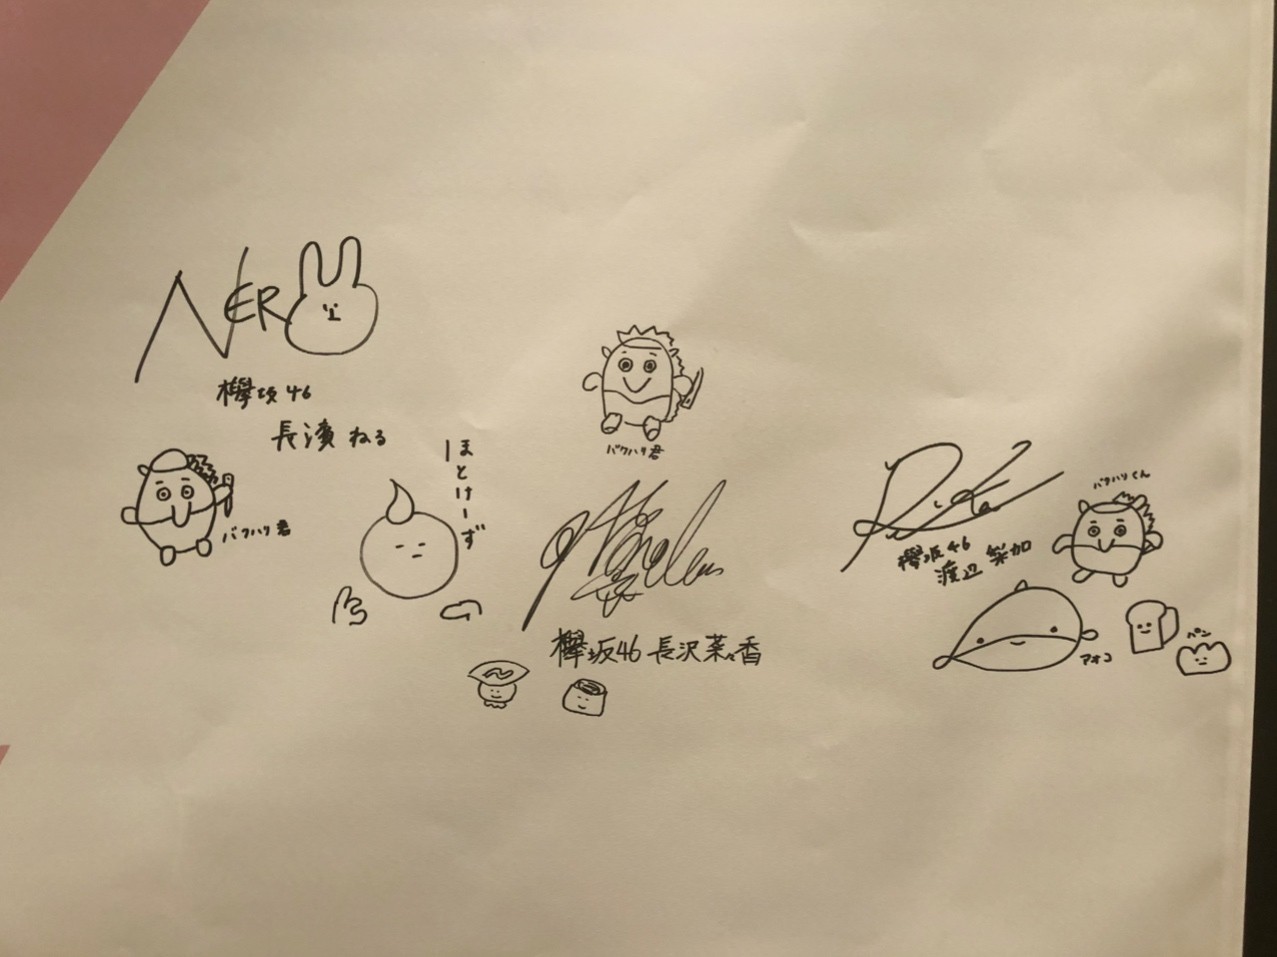 NER
欅坂46
長濱 ねる
バクハリ君
ほとけーず
バクハリ君
欅坂46 長沢菜々香
Rika
欅坂46
渡辺 梨加
バクハリくん
アオコ
パン